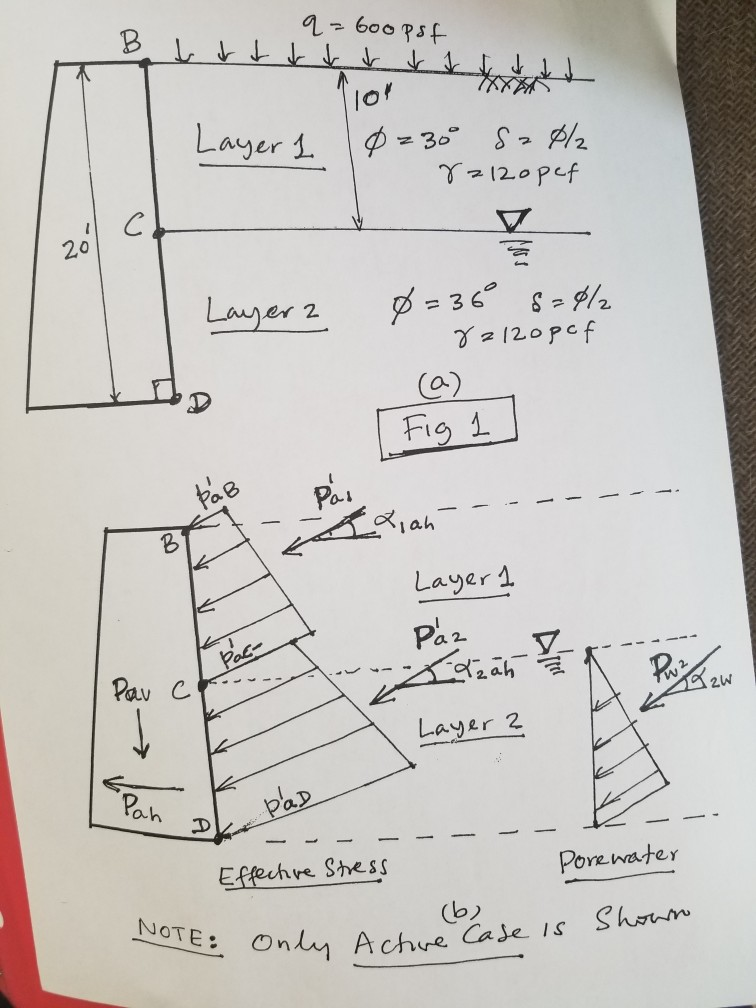 q = 600 psf
B
10'
Layer 1
φ = 30° δ = φ/2
γ = 120 pcf
20'
C
Layer 2
φ = 36° δ = φ/2
γ = 120 pcf
D
(a)
Fig 1
p'aB
P'a1
α1ah
B
Layer 1
p'ac-
P'a2
α2ah
Pw2
α2w
C
Pav
Layer 2
Pah
p'aD
D
Effective Stress
Porewater
(b)
NOTE: Only Active Case is Shown